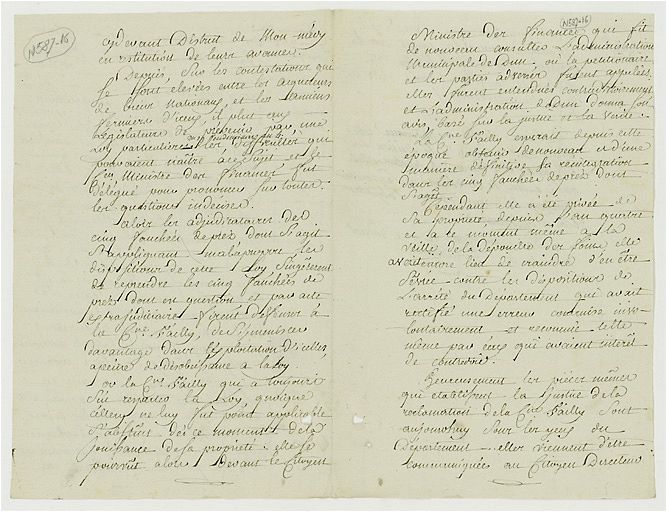 N587-16
cydevant District de Mon médy
en restitution de leurs avances.
Depuis, sur les contestations qui
se sont elevées entre les acquereurs
de biens Nationaux, et les anciens
fermiers d'iceux, il plut aux
Legislateurs de prévenir par une
Loy particuliere du 27 les difficultés qui
pouvoient naître à ce sujet et le
Cen Ministre des Finances fut
délégué pour prononcer sur toutes
les questions indécises.
alors les adjudicataires des
cinq fauchées de prez dont s'agit
s'appliquant mal apropos les
dispositions de cette Loy s'ingérerent
de reprendre les cinq fauchées de
prez dont est question et par acte
extrajudiciaire firent deffenses à
la Cne d'ailly, de s'immiscer
davantage dans l'exploitation d'icelles,
a peine de désobéissance a la Loy.
ou la Cne d'ailly qui a toujours
sçu respecter la Loy, quoique
celle cy ne luy fut point applicable
s'abstint dès ce moment de la
jouissance de sa propriété. elle se
pourvut alors devant le Citoyen
N587-16
Ministre des Finances qui fit
de nouveau consulter L'administration
Municipale de Dun. où la petitionaire
et les parties adverses furent appellées,
elles furent entendues contradictoirement
et L'administration de Dun donna son
avis, basé sur la justice et la vérité.
La Cne d'ailly auroit depuis cette
époque obtenu de nouveau et d'une
maniere définitive sa réintégration
dans les cinq fauchées de prez dont
s'agit.
Cependant elle a été privée de
sa propriété depuis l'an quatre
et a le moment même a la
veille, de la dépouille des foins, elle
avoit encore lieu de craindre d'en être
sevrée contre les dispositions de
L'arrêté du Département qui avoit
rectifié une erreur commise invo-
lontairement et reconnue telle
même par ceux qui avoient intérêt
de contredire.
Heureusement les pieces mêmes
qui etablissent la justice de la
réclamation de la Cne d'ailly sont
aujourd'huy sous les yeux du
Département. elles viennent d'être
communiquées au Citoyen Directeur